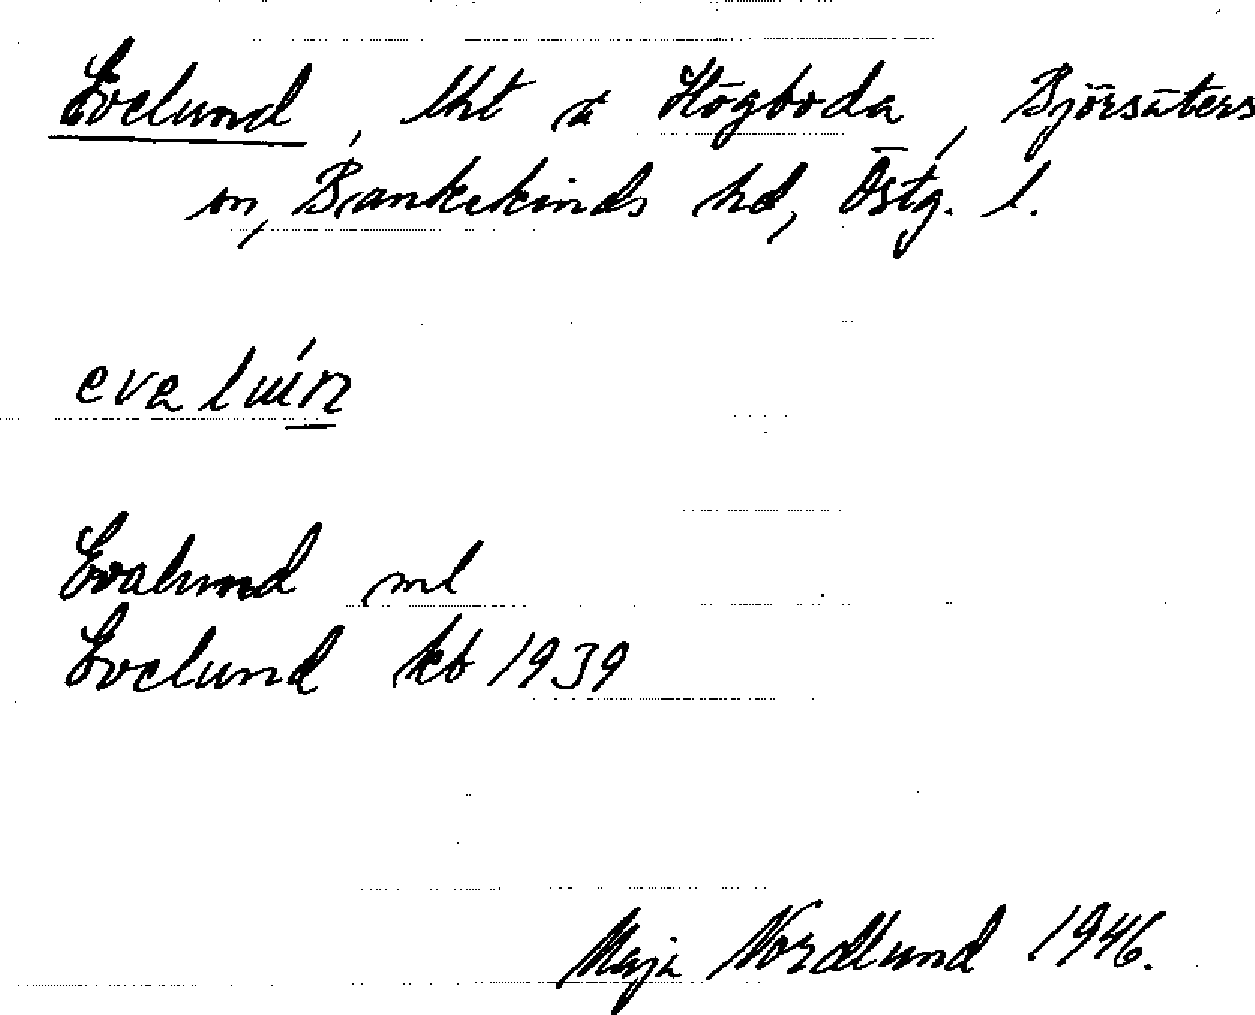 Evelund, lht å Högboda, Björsäters
sn, Bankekinds hd, Östg. l.
evalún
Evalund ml
Evelund kb 1939
Maja Nordlund 1946.